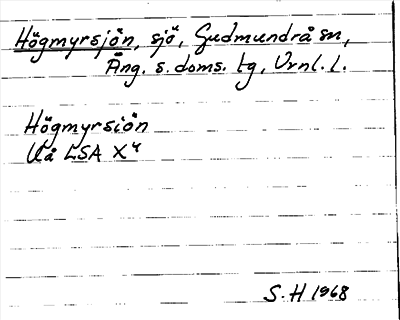 Högmyrsjön, sjö, Gudmundrå sn,
Äng. s. doms. tg, Vrnl. l.
Högmyrsiön
Uå LSA X4
S.H 1968